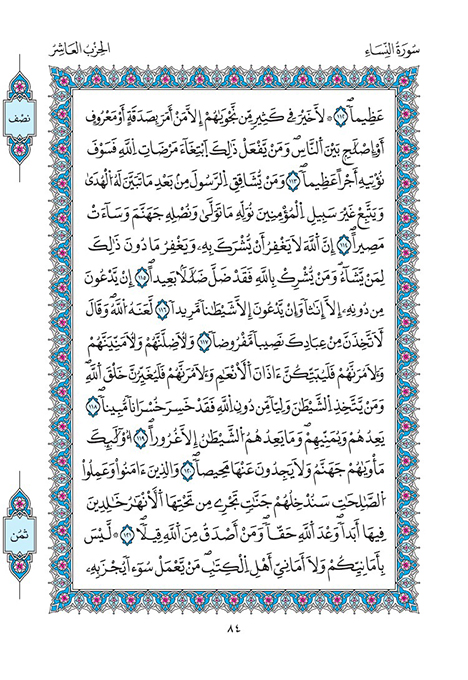 سُورَةُ النِّسَاءِ
الحِزْبُ العَاشِرُ
نصْف
عَظِيماًۖ ١١٢ ۞ لَّا خَيْرَ فِے كَثِيرٖ مِّن نَّجْوَىٰهُمُۥٓ إِلَّا مَنَ اَمَرَ بِصَدَقَةٍ اَوْ مَعْرُوفٍ
اَوِ اِصْلَٰحِۢ بَيْنَ اَ۬لنَّاسِۖ وَمَنْ يَّفْعَلْ ذَٰلِكَ اَ۪بْتِغَآءَ مَرْضَاتِ اِ۬للَّهِ فَسَوْفَ
نُؤْتِيهِ أَجْراً عَظِيماًۖ ١١٣ وَمَنْ يُّشَاقِقِ اِ۬لرَّسُولَ مِنۢ بَعْدِ مَا تَبَيَّنَ لَهُ اُ۬لْهُد۪ىٰ
وَيَتَّبِعْ غَيْرَ سَبِيلِ اِ۬لْمُؤْمِنِينَ نُوَلِّهِۦ مَا تَوَلَّىٰ وَنُصْلِهِۦ جَهَنَّمَ وَسَآءَتْ
مَصِيراًۖ ١١٤ اِنَّ اَ۬للَّهَ لَا يَغْفِرُ أَنْ يُّشْرَكَ بِهِۦ وَيَغْفِرُ مَا دُونَ ذَٰلِكَ
لِمَنْ يَّشَآءُۖ وَمَنْ يُّشْرِكْ بِاللَّهِ فَقَد ضَّلَّ ضَلَٰلاَۢ بَعِيداًۖ ١١٥ اِنْ يَّدْعُونَ
مِن دُونِهِۦٓ إِلَّآ إِنَٰثاً وَإِنْ يَّدْعُونَ إِلَّا شَيْطَٰناً مَّرِيداً ١١٦ لَّعَنَهُ اُ۬للَّهُۖ وَقَالَ
لَأَتَّخِذَنَّ مِنْ عِبَادِكَ نَصِيباً مَّفْرُوضاًۖ ١١٧ وَلَأُضِلَّنَّهُمْ وَلَأُمَنِّيَنَّهُمْ
وَءَلَامُرَنَّهُمْ فَلَيُبَتِّكُنَّ ءَاذَانَ اَ۬لْأَنْعَٰمِ وَءَلَامُرَنَّهُمْ فَلَيُغَيِّرُنَّ خَلْقَ اَ۬للَّهِۖ
وَمَنْ يَّتَّخِذِ اِ۬لشَّيْطَٰنَ وَلِيّاً مِّن دُونِ اِ۬للَّهِ فَقَدْ خَسِرَ خُسْرَاناً مُّبِيناًۖ ١١٨
يَعِدُهُمْ وَيُمَنِّيهِمْۖ وَمَا يَعِدُهُمُ اُ۬لشَّيْطَٰنُ إِلَّا غُرُوراًۖ ١١٩ ا۟وْلَٰٓئِكَ
مَأْوَيٰهُمْ جَهَنَّمُ وَلَا يَجِدُونَ عَنْهَا مَحِيصاًۖ ١٢٠ وَالذِينَ ءَامَنُواْ وَعَمِلُواْ
اُ۬لصَّٰلِحَٰتِ سَنُدْخِلُهُمْ جَنَّٰتٖ تَجْرِے مِن تَحْتِهَا اَ۬لْأَنْهَٰرُ خَٰلِدِينَ
فِيهَآ أَبَداًۖ وَعْدَ اَ۬للَّهِ حَقّاًۖ وَمَنَ اَصْدَقُ مِنَ اَ۬للَّهِ قِيلاًۖ ١٢١ ۞ لَّيْسَ
بِأَمَانِيِّكُمْ وَلَآ أَمَانِيِّ أَهْلِ اِ۬لْكِتَٰبِۖ مَنْ يَّعْمَلْ سُوٓءاً يُجْزَ بِهِۦ
ثمُن
٨٤